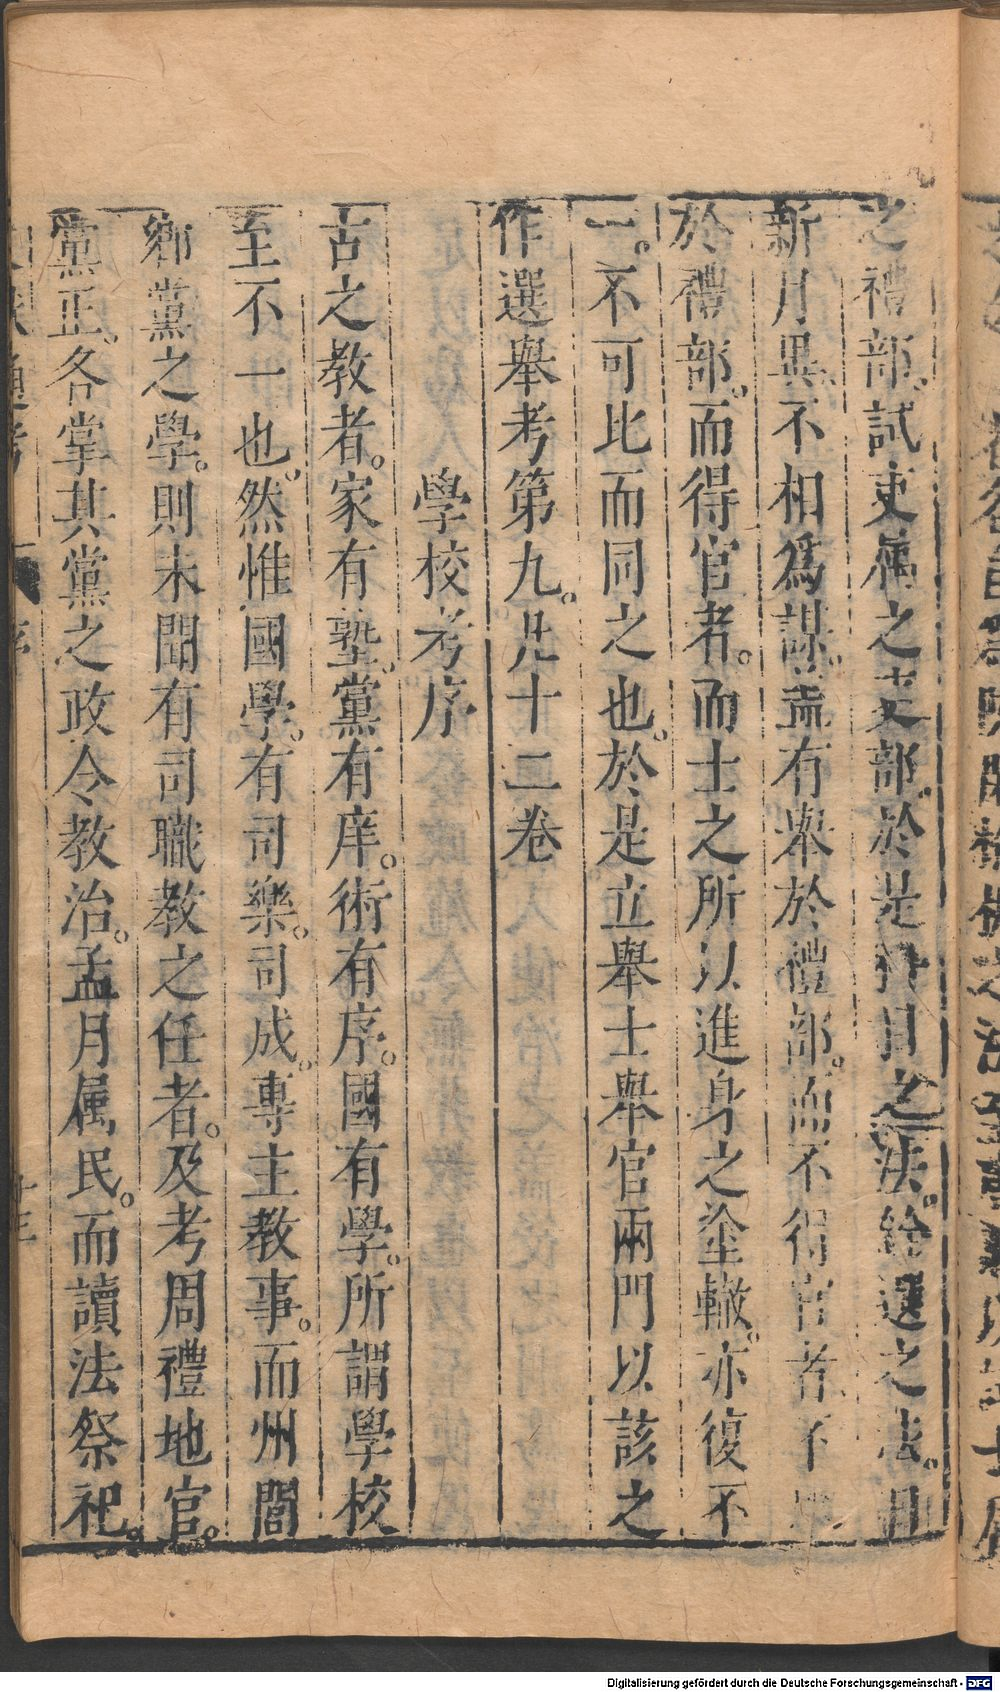 之禮部、試吏屬之吏部。於是科目之法、銓選之法。日
新月異、不相爲謀。盖有舉於禮部。而不得官者、不
於禮部。而得官者。而士之所以進身之塗轍。亦復不
一。不可比而同之也。於是立舉士舉官兩門以該之
作選舉考第九。凡十二卷
學校考序
古之教者。家有塾。黨有庠。術有序。國有學。所謂學校
至不一也。然惟國學。有司樂。司成。專主教事。而州閭
鄉黨之學。則未聞有司職教之任者。及考周禮地官。
黨正。各掌其黨之政令教治。孟月属民。而讀法祭祀。
通考
序
Digitalisierung gefördert durch die Deutsche Forschungsgemeinschaft - DFG